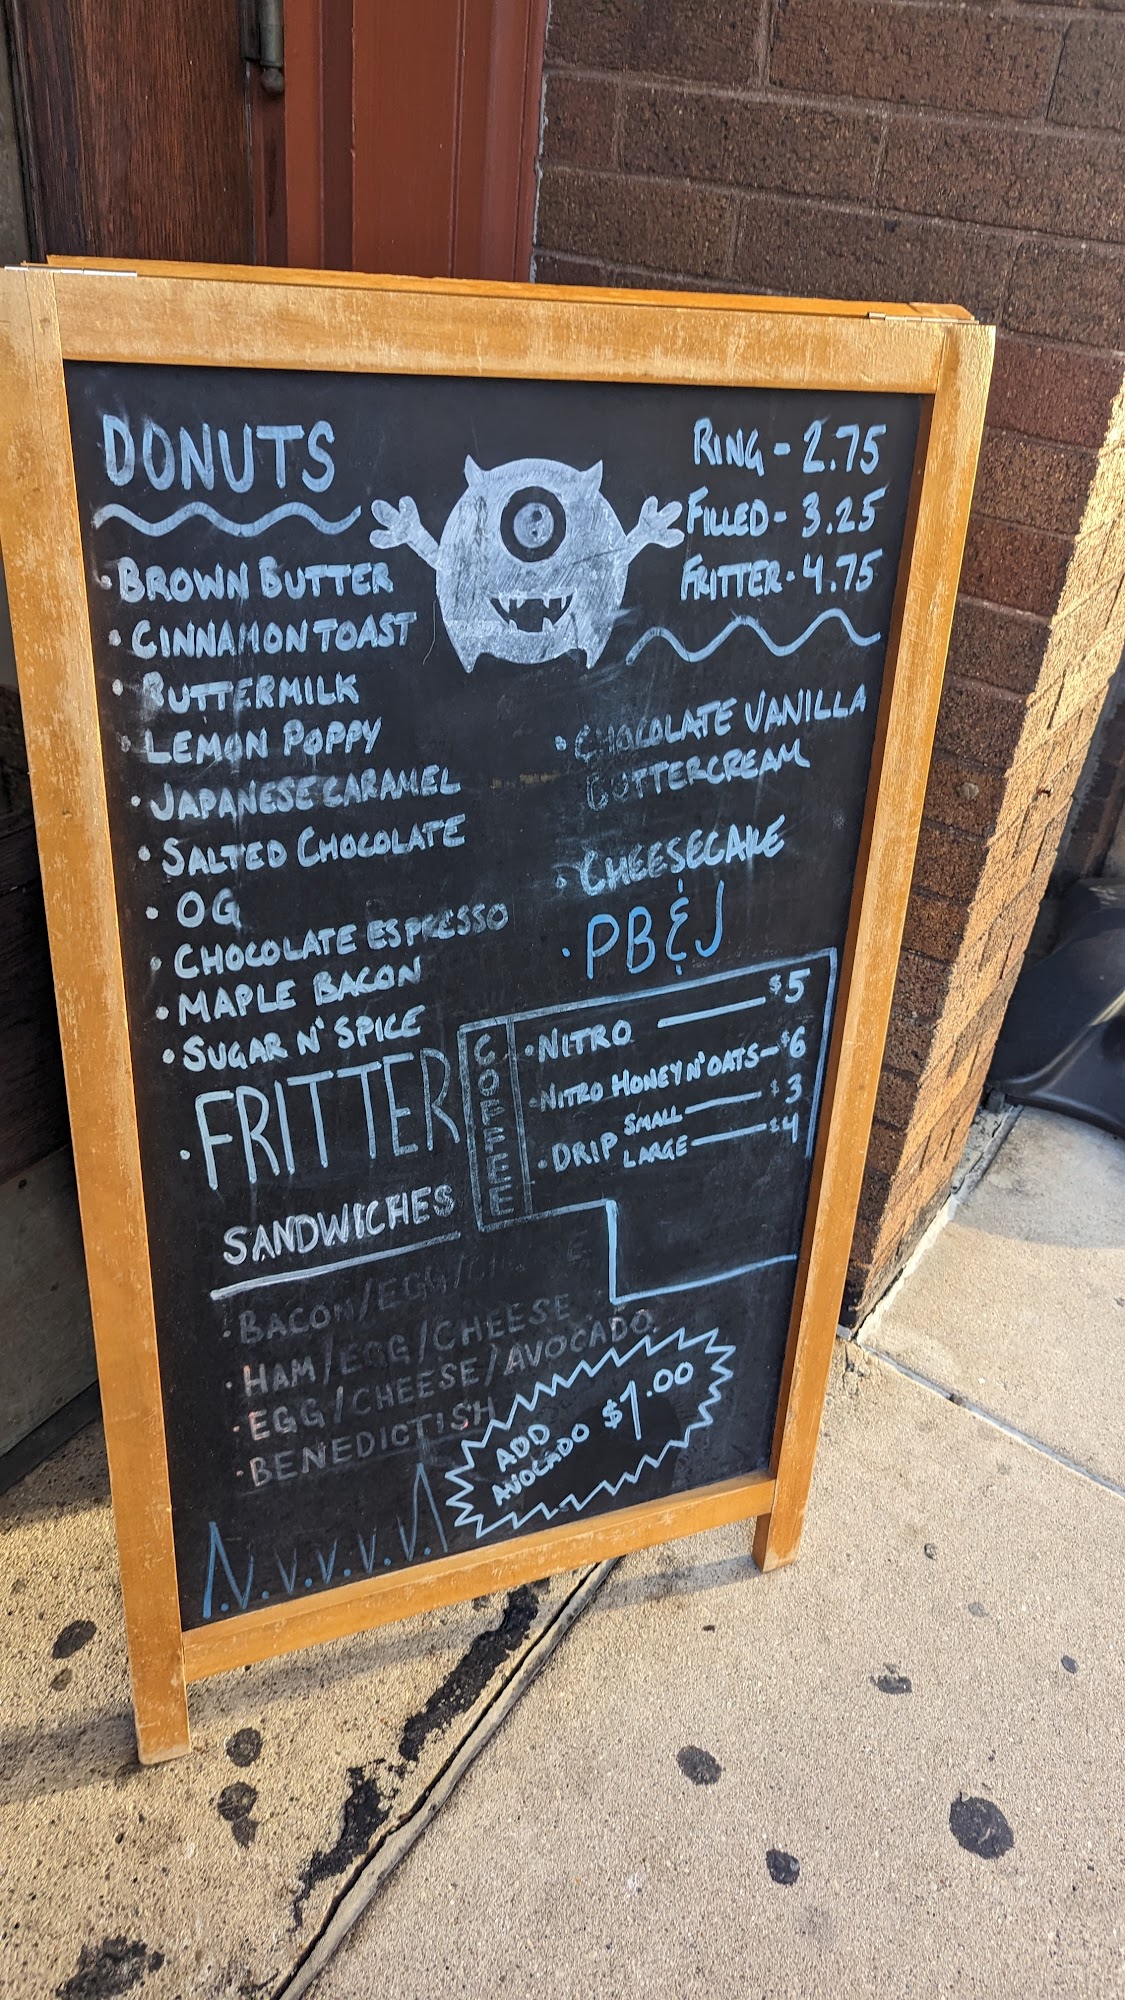 DONUTS
• BROWN BUTTER
• CINNAMON TOAST
• BUTTERMILK
• LEMON POPPY
• JAPANESE CARAMEL
• SALTED CHOCOLATE
• OG
• CHOCOLATE ESPRESSO
• MAPLE BACON
• SUGAR N' SPICE
• FRITTER
RING - 2.75
FILLED - 3.25
FRITTER - 4.75
• CHOCOLATE VANILLA
BUTTERCREAM
• CHEESECAKE
• PB&J
COFFEE
• NITRO — $5
• NITRO HONEY N' OATS — $6
• DRIP SMALL — $3
LARGE — $4
SANDWICHES
• BACON/EGG/CHEESE
• HAM/EGG/CHEESE
• EGG/CHEESE/AVOCADO
• BENEDICTISH
ADD
AVOCADO $1.00